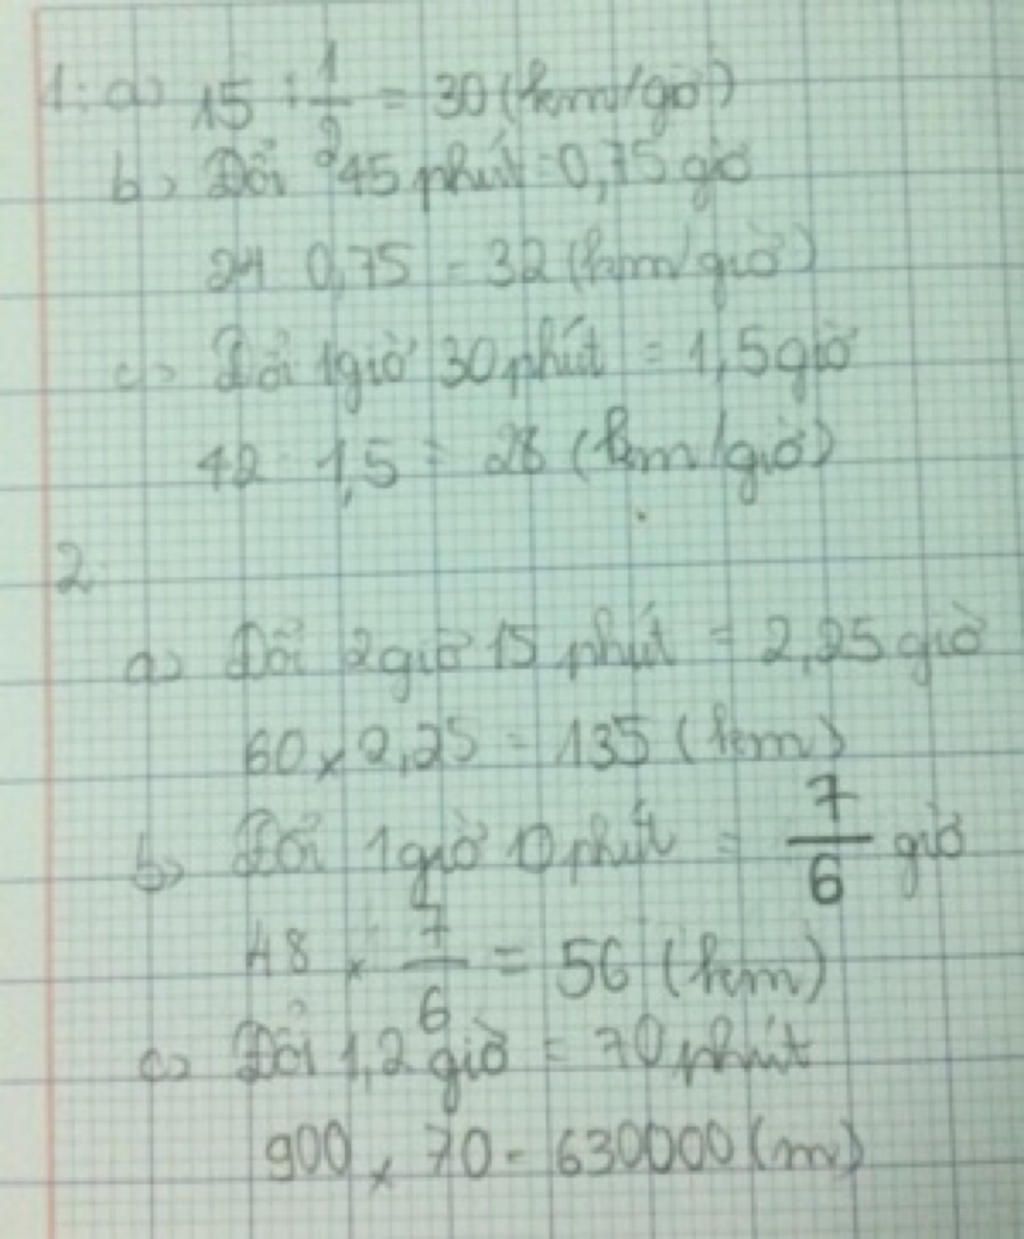 1: a) 15 : 1/2 = 30 (km/giờ)
b) Đổi 45 phút = 0,75 giờ
24 0,75 = 32 (km/giờ)
c) Đổi 1 giờ 30 phút = 1,5 giờ
42 1,5 = 28 (km/giờ)
2
a) Đổi 2 giờ 15 phút = 2,25 giờ
60 x 2,25 = 135 (km)
b) Đổi 1 giờ 10 phút = 7/6 giờ
48 x 7/6 = 56 (km)
c) Đổi 1,2 giờ = 70 phút
900 x 70 = 630000 (m)